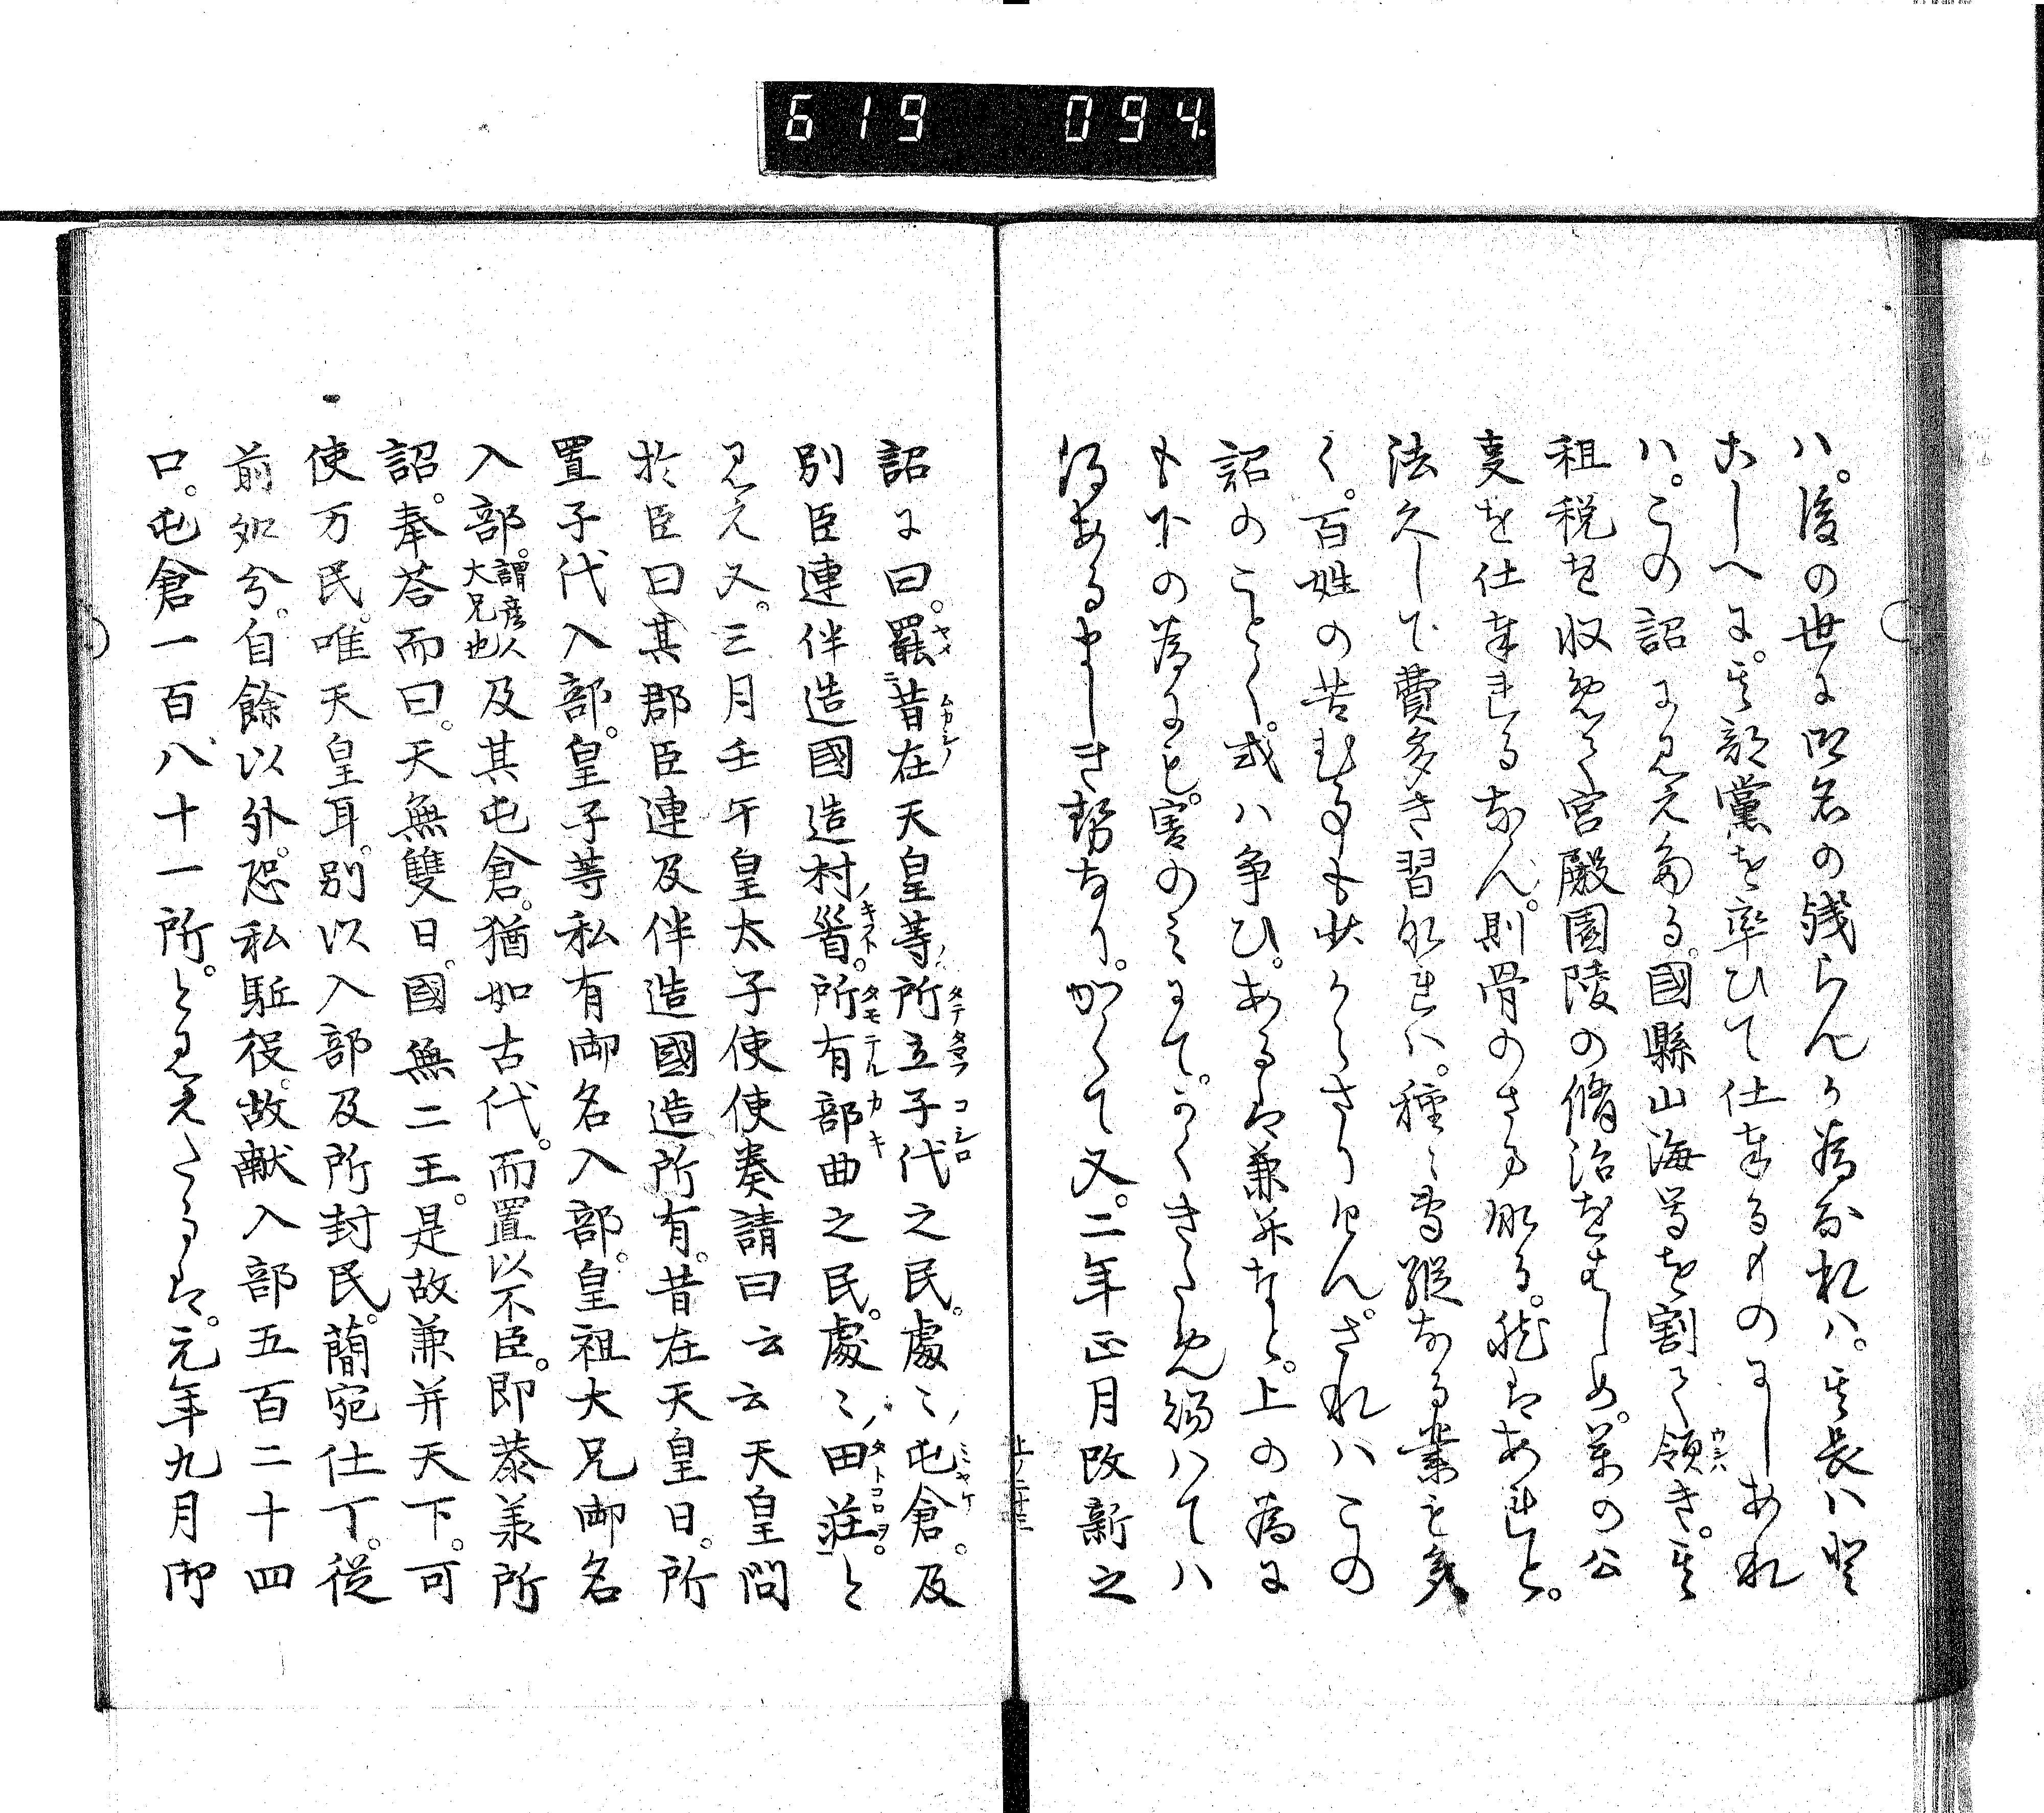 619 094.
ハ。後の世に御名の残らんか為なれハ。其長ハ必
あしへに。其部黨を率ひて仕奉るものにしあれ
ハ。この詔に見えたる。國縣山海等を割て領き。其
租税を収めて宮殿園陵の脩治をもしめ。萬の公
事を仕奉れるなん。則骨のさま那る。然はあれと。
法久しして費多き習那れハ。種々専縱なる業も多
く。百姓の苦むるも少からさりけん。されハこの
詔のことく。或ハ争ひ。あるは兼并なと。上の為に
も下の為にも。害のみにて。かくきため給ハてハ
得あるましき勢なり。かくて又。二年正月改新之
詔に曰。罷昔在天皇等所立子代之民。處々屯倉。及
別臣連伴造國造村首。所有部曲之民。處々田荘。と
見え又。三月壬午皇太子使使奏請曰云云天皇問
於臣曰其郡臣連及伴造國造所有。昔在天皇日。所
置子代入部。皇子等私有御名入部。皇祖大兄御名
入部。謂彦人大兄也及其屯倉。猶如古代。而置以不臣。即恭羕所
詔。奉荅而曰。天無雙日。國無二王。是故兼并天下。可
使万民。唯天皇耳。別以入部及所封民。簡宛仕丁。従
前処分。自餘以外。恐私駈役。故献入部五百二十四
口。屯倉一百八十一所。と見えたるは。元年九月御